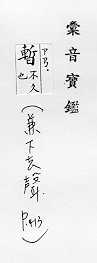 彙音寶鑑
ㄗㄢˋ
暫不久也
(兼下去聲)
P.413